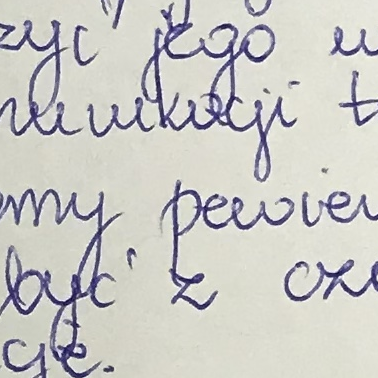 żyć jego u
munikacji t
emy pewien
być z cze
cję.